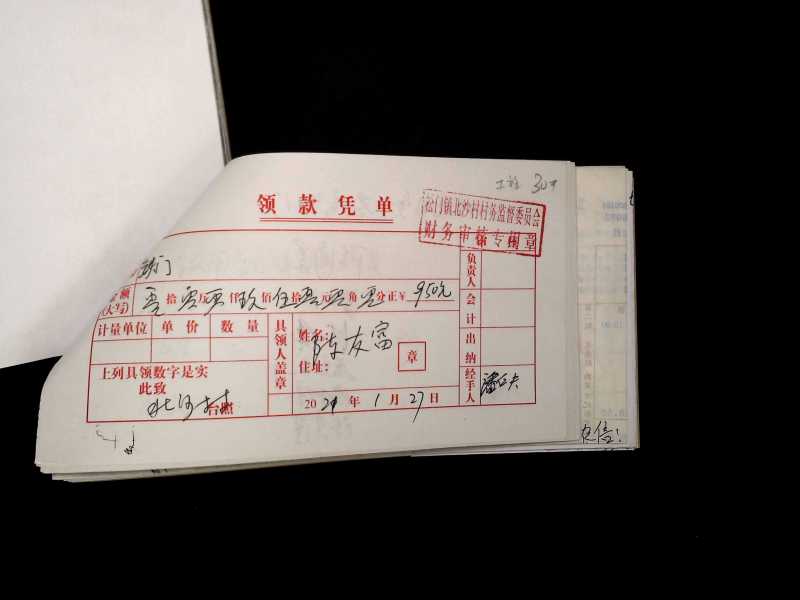 工程 30#
领款凭单
松门镇北沙村村务监督委员会
财务审核专用章
门
额 零拾零万零仟玖佰伍拾零元零角零分正¥950元
(大写)
计量单位 单价 数量
具领人盖章
姓名: 陈友富
住址:
章
上列具领数字是实
此致
北沙村 台照
2021年1月27日
负责人
会计
出纳
经手人